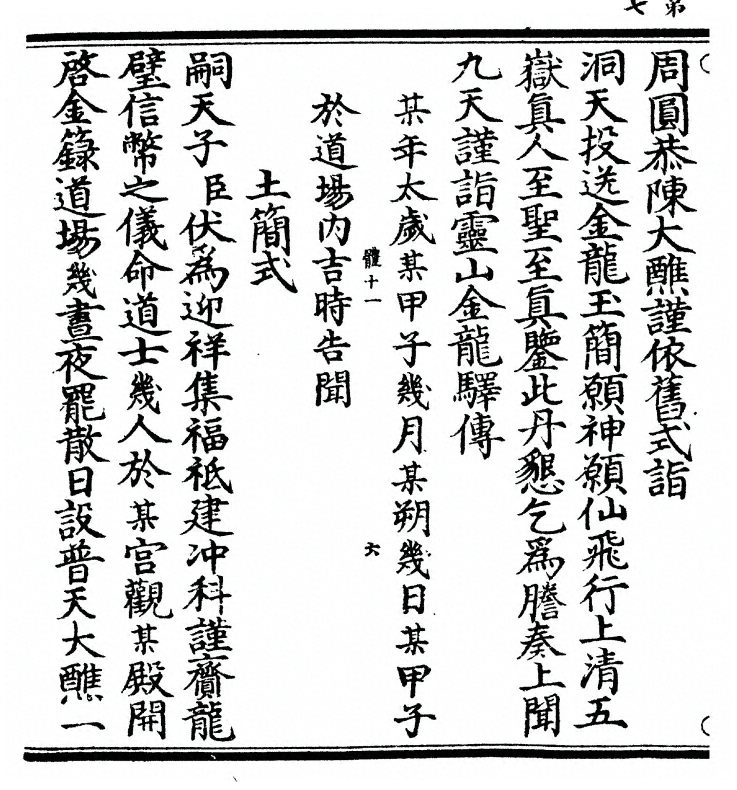 第七
周圓恭陳大醮謹依舊式詣
洞天投送金龍玉簡願神願仙飛行上清五
嶽眞人至聖至眞鑒此丹懇乞爲謄奏上聞
九天謹詣靈山金龍驛傳
某年太歲某甲子幾月某朔幾日某甲子
體十一
六
於道場內吉時告聞
土簡式
嗣天子臣伏爲迎祥集福祗建冲科謹齎龍
璧信幣之儀命道士幾人於某宮觀某殿開
啓金籙道場幾晝夜罷散日設普天大醮一